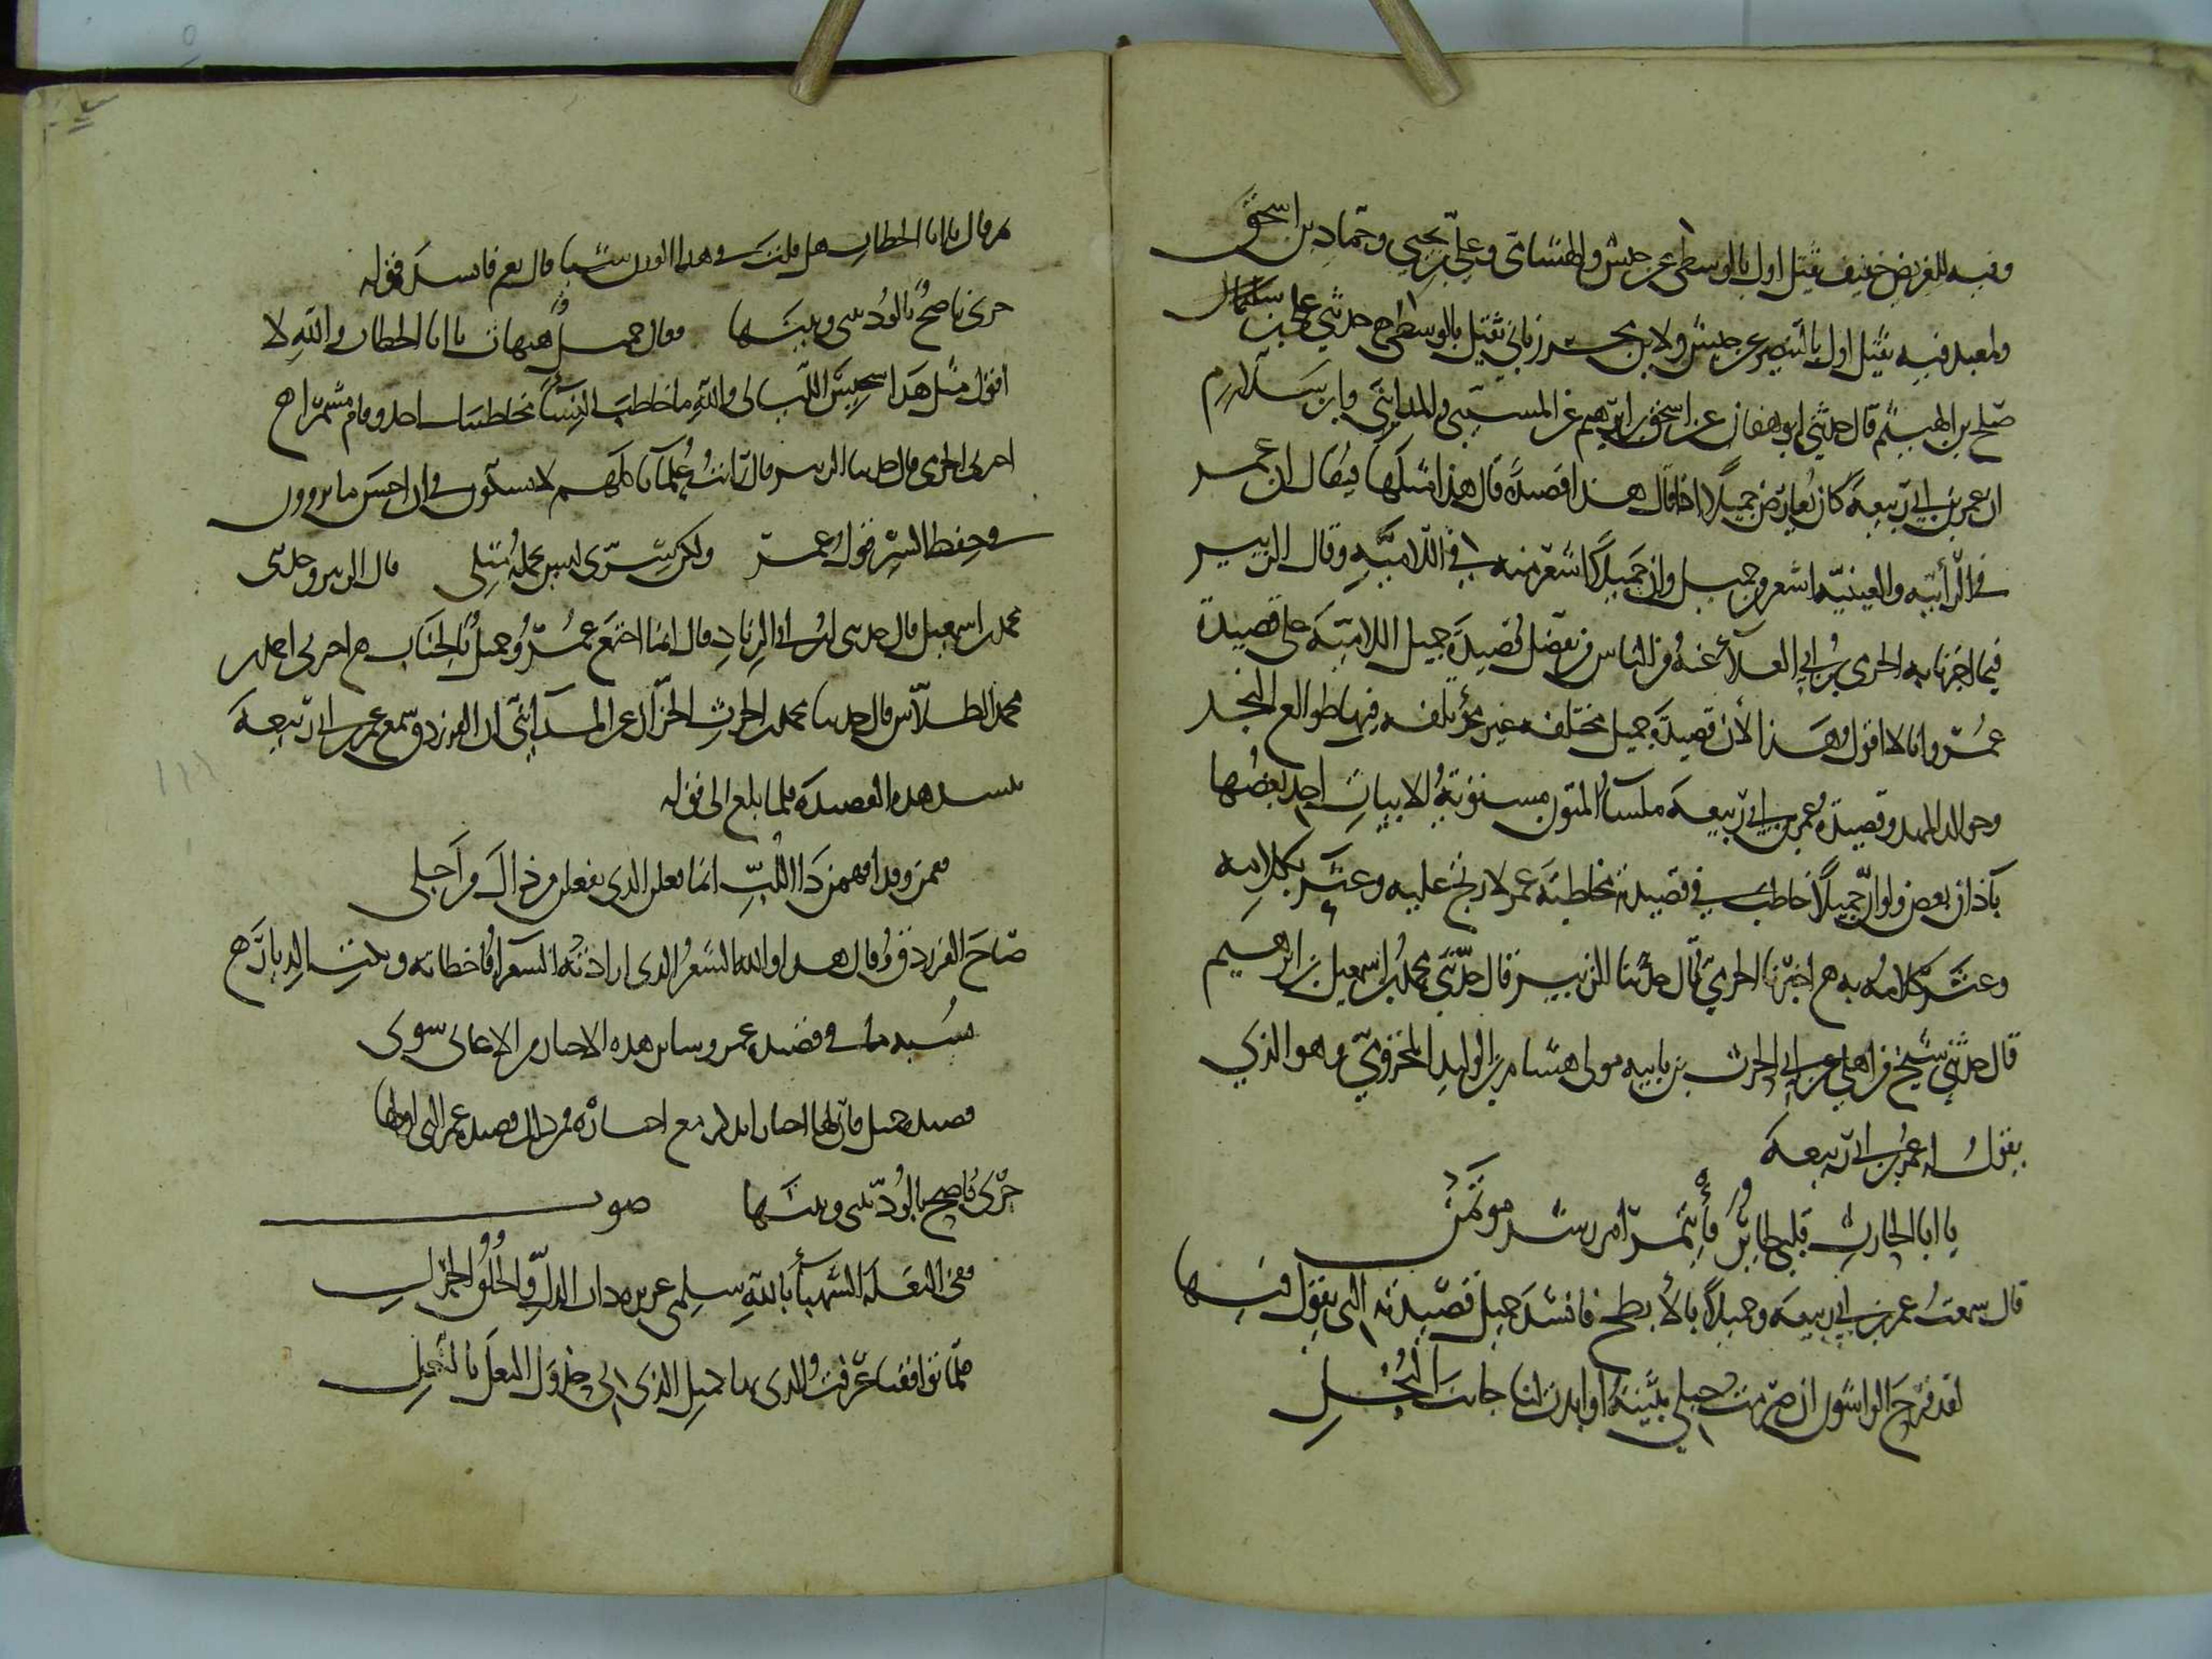 وفيه للغريض خفيف ثقيل اول بالوسطى عن حبش والهشامي وعلي بن يحيى وحماد بن اسحق
ولمعبد فيه ثقيل اول بالبنصر عن حبش ولابن محرز ثاني ثقيل بالوسطى ح حدثني علي بن
صلح بن الهيثم قال حدثني ابو هفان عن اسحق بن ابرهيم عن المسيبي والمدايني وابن سلام
ان عمر بن ابي ربيعة كان يعارض جميلا اذا قال هذا قصيدة قال هذا مثلها فيقال ان عمر
في الرائية والعينية اشعر من جميل وان جميلا اشعر منه في اللامية وقال الزبير
فيما اخبرنا به الحرمي بن ابي العلاء عنه من الناس من يفضل قصيدة جميل اللامية على قصيدة
عمر وانا لا اقول هذا لأن قصيدة جميل مختلفة غير مؤتلفة فيها طوالع النجد
وخوالد المهد وقصيدة عمر بن ابي ربيعة ملساء المتون مستوية الابيات اخذ بعضها
بآذان بعض ولو ان جميلا خاطب في قصيدته مخاطبة عمر لارتج عليه وعثر بكلامه
وعثر كلامه به ح اخبرنا الحرمي قال حدثنا الزبير قال حدثني محمد بن اسمعيل بن ابرهيم
قال حدثني شيخ من اهلي عن ابي الحرث بن نابيه مولى هشام بن الوليد المخزومي وهو الذي
يقول له عمر بن ابي ربيعة
يا ابا الحارث قلبي طائر فأتمر امر رشد مؤتمن
قال سمعت عمر بن ابي ربيعة وجميلا بالأبطح فانشد جميل قصيدته التي يقول فيها
لقد فرح الواشون ان صرمت حبلي بثينة او ابدت لنا جانب البخل
ثم قال يا ابا الخطاب هل قلت في هذا الروي شيئا قال نعم فانشد قوله
جرى ناصح بالود بيني وبينها فقال جميل هيهات يا ابا الخطاب والله لا
اقول مثل هذا سجيس الليالي والله ما خاطب النساء مخاطبتك احد وقام مشمرا ح
اخبرني الحرمي قال حدثنا الزبير قال رأيت علماءنا كلهم لا يشكون في ان احسن ما يروون
في حفظ السر قول عمر ولكن سري ليس يحمله مثلي قال الزبير وحدثني
محمد بن اسمعيل قال حدثني ابن ابي الزناد قال انما اجتمع عمر وجميل بالجناب ح اخبرني احمد بن
محمد الطلاس قال حدثنا محمد بن الحرث الخزاز عن المدايني ان الفرزدق سمع عمر بن ابي ربيعة
ينشد هذه القصيدة فلما بلغ الى قوله
فقمن وقد افهمن ذا اللب انما فعلن الذي يفعلن من ذاك من اجلي
صاح الفرزدق وقال هذا والله الشعر الذي ارادته الشعراء فاخطأته وبكت الديار ح
نسبة ما في قصيدة عمر وسائر هذه الاخبار من الاغاني سوى
قصيدة جميل فان لها اخبارا تذكر مع اخباره فمن ذلك قصيدة عمر التي اولها
جرى ناصح بالود بيني وبينها صوت
قفي البغلة الشهباء بالله سلمي عزيزة ذات الدل والخلق الجزل
فلما تواقفنا عرفت الذي بها كمثل الذي بي حذوك النعل بالنعل